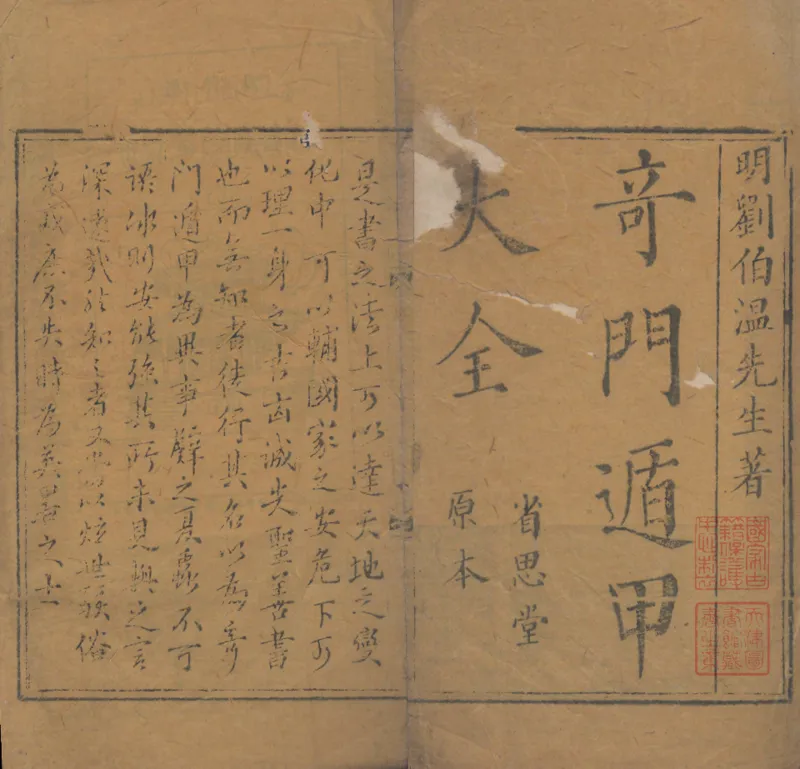 明劉伯温先生著
竒門遁甲
大全
省思堂
原本
是書之法上可以達天地之變
化中可以輔國家之安危下可
以理一身之吉凶誠先聖善書
也而無知者徒行其名以為竒
門遁甲為異事譬之夏蟲不可
語冰則安能強其所未見與之言
深遠哉於知之者又以炫世駭俗
為哉庶不失時為英之士